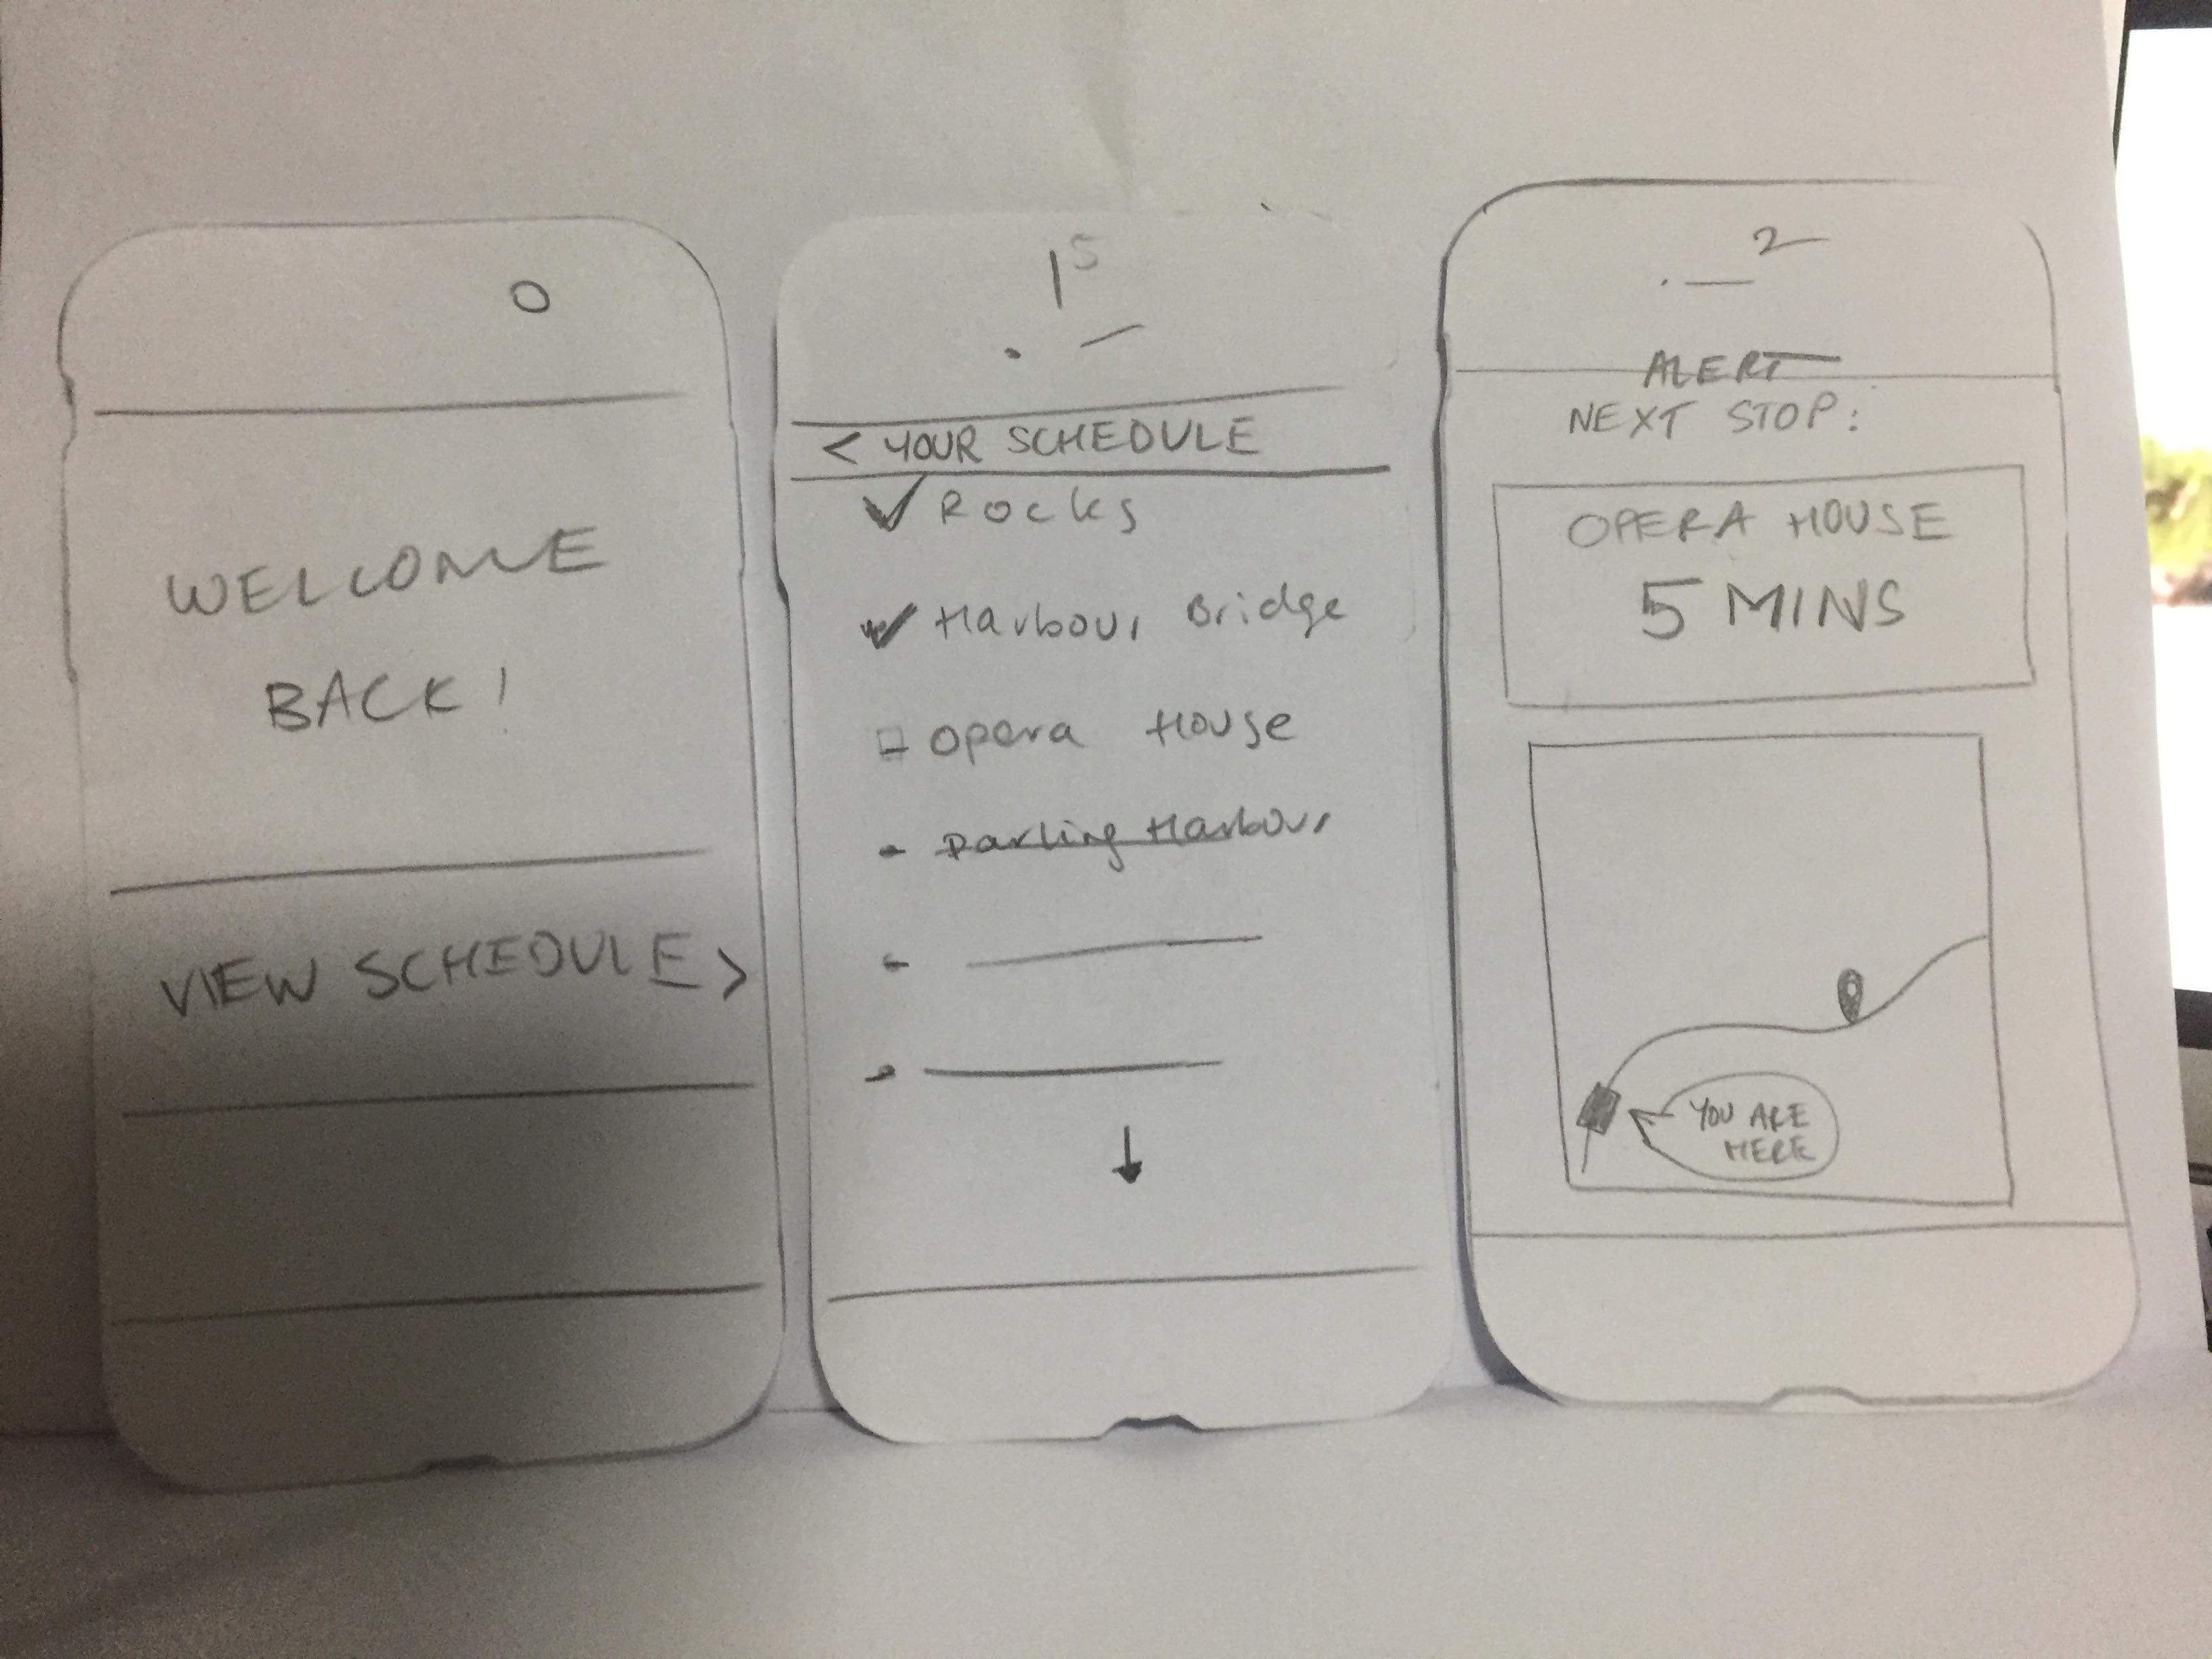 O
WELCOME
BACK!
VIEW SCHEDULE >
1 5
< YOUR SCHEDULE
Rocks
Harbour Bridge
Opera House
Darling Harbour
2
ALERT
NEXT STOP:
OPERA HOUSE
5 MINS
YOU ARE
HERE